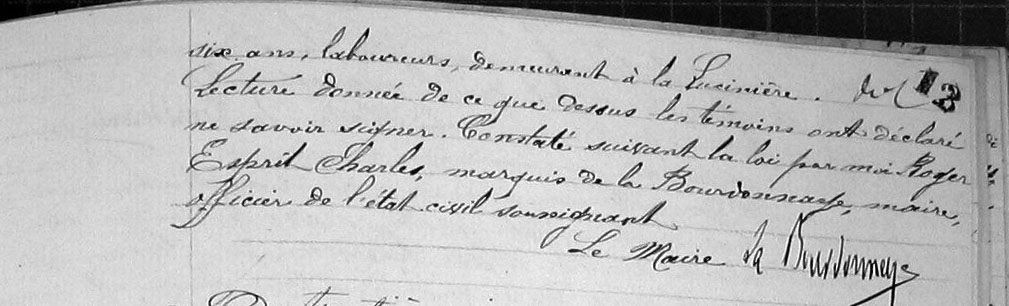 six ans, laboureurs, demeurant à la Lucinière.
Lecture donnée de ce que dessus les témoins ont déclaré
ne savoir signer. Constaté suivant la loi par moi Roger
Esprit Charles, marquis de la Bourdonnaye, maire,
officier de l'état civil soussignant
Le Maire La Bourdonnaye